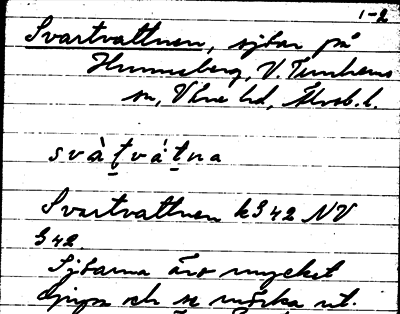 1-2
Svartvattnen, sjöar på
Hunneberg, V. Tunhems
sn, Väne hd, Älvsb. l.
svàt̠vát̠na
Svartvattnen k342 NV
342
Sjöarna äro mycket
djupa och se mörka ut.